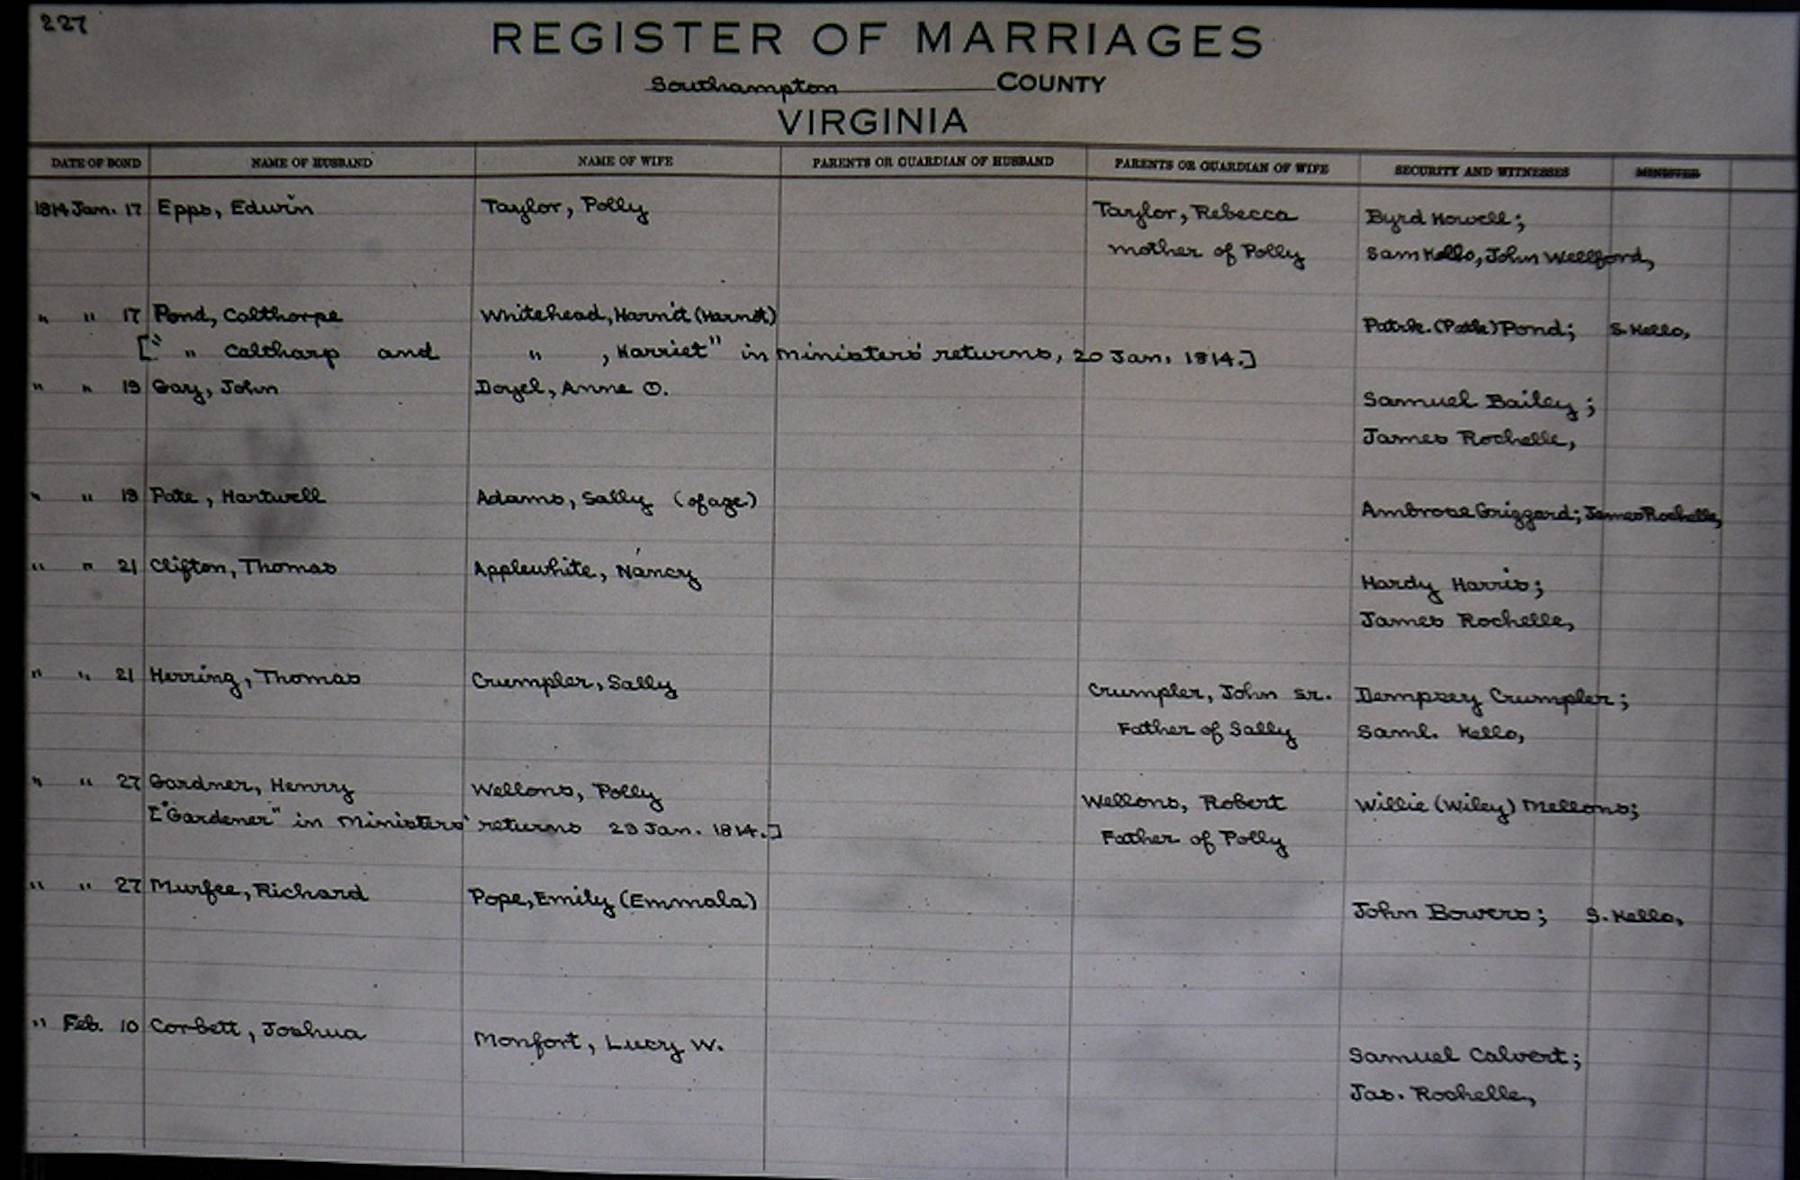 227
REGISTER OF MARRIAGES
Southampton COUNTY
VIRGINIA
DATE OF BOND NAME OF HUSBAND NAME OF WIFE PARENTS OR GUARDIAN OF HUSBAND PARENTS OR GUARDIAN OF WIFE SECURITY AND WITNESSES MINISTER
1814 Jan. 17 Epps, Edwin Taylor, Polly Taylor, Rebecca Byrd Howell;
mother of Polly Sam Kello, John Wellford,
" " 17 Pond, Calthorpe Whitehead, Harriet (Harriot) Patrk. (Patk) Pond; S. Kello,
[" " Caltharp and " , Harriet" in ministers' returns, 20 Jan. 1814.]
" " 19 Gay, John Doyel, Anne O. Samuel Bailey;
James Rochelle,
" " 19 Pate, Hartwell Adams, Sally (of age) Ambrose Griggard; James Rochelle,
" " 21 Clifton, Thomas Applewhite, Nancy Hardy Harris;
James Rochelle,
" " 21 Herring, Thomas Crumpler, Sally Crumpler, John sr. Dempsey Crumpler;
Father of Sally Saml. Kello,
" " 27 Gardner, Henry Wellons, Polly Wellons, Robert Willie (Wiley) Mellons;
["Gardener" in Ministers' returns 29 Jan. 1814.] Father of Polly
" " 27 Murfee, Richard Pope, Emily (Emmala) John Bowers; S. Kello,
" Feb. 10 Corbett, Joshua Monfort, Lucy W. Samuel Calvert;
Jas. Rochelle,